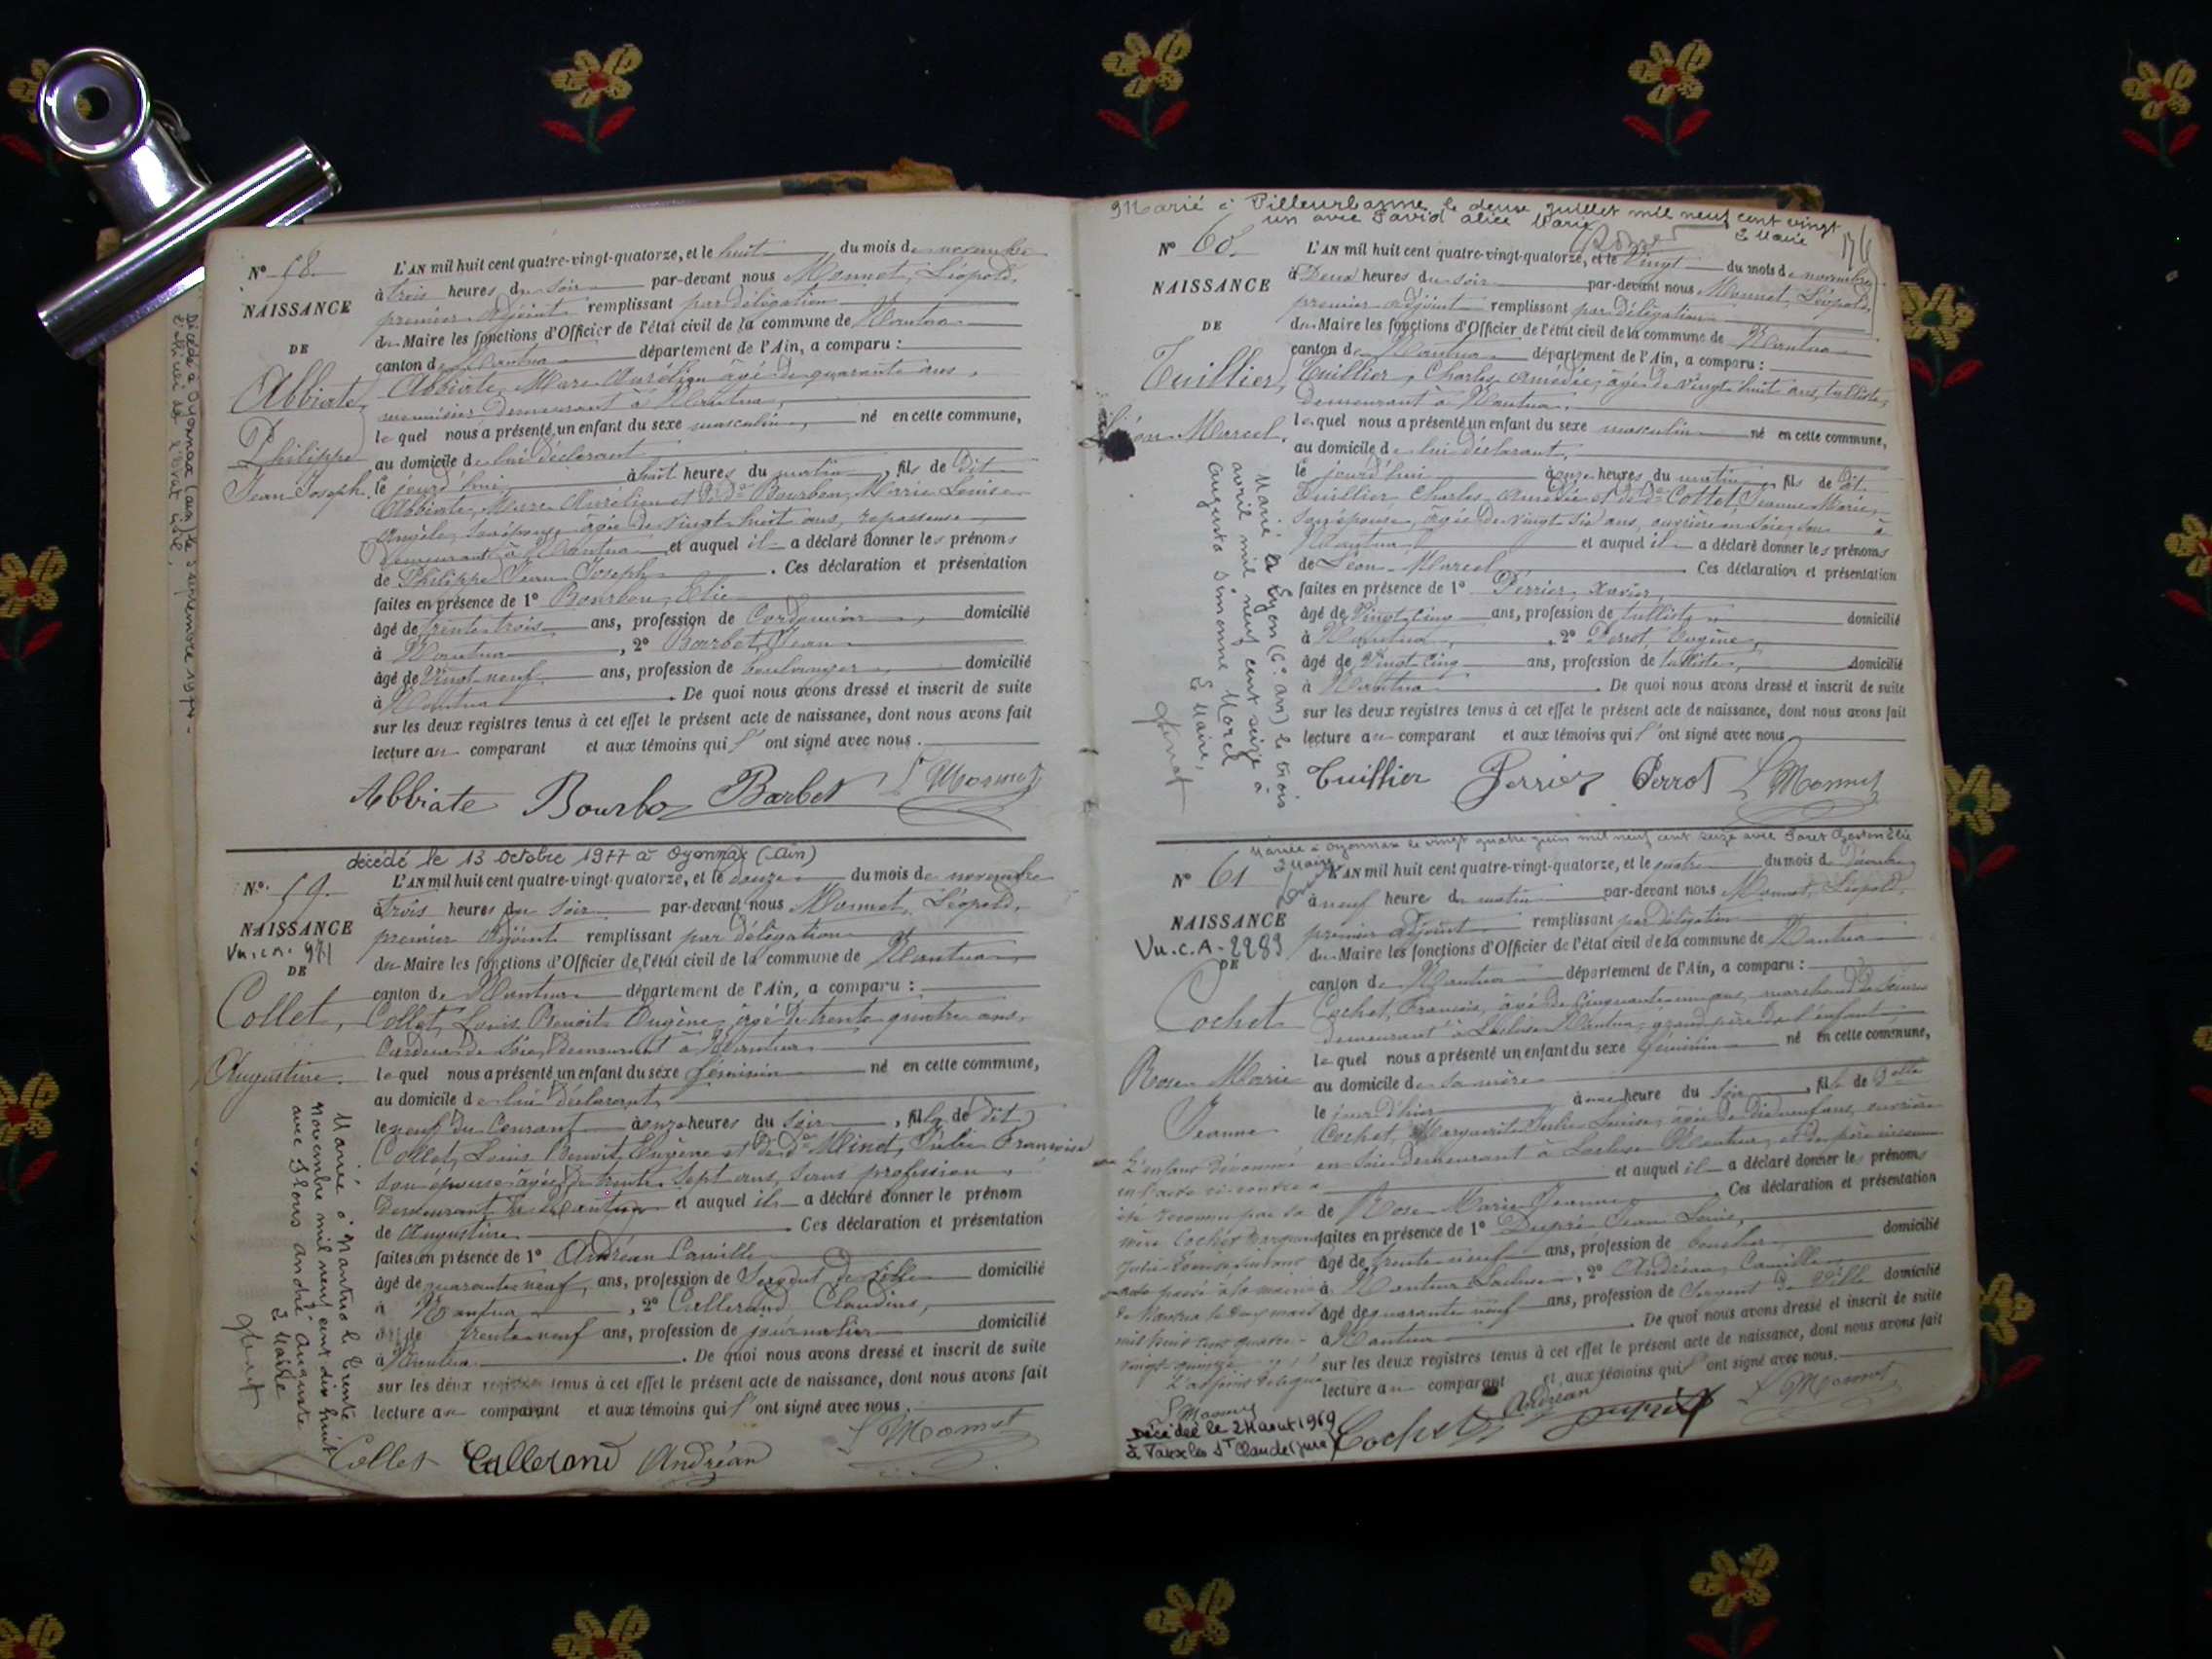 Nº 58.
NAISSANCE
DE
Abbiate,
Philippe
Jean Joseph.
L'AN mil huit cent quatre-vingt-quatorze, et le huit du mois de novembre
à trois heures du soir par-devant nous Monnet, Léopold,
premier adjoint remplissant par délégation
du Maire les fonctions d'Officier de l'état civil de la commune de Nantua
canton de Nantua département de l'Ain, a comparu :
Abbiate, Marc Aurélien âgé de quarante ans,
menuisier demeurant à Nantua,
lequel nous a présenté un enfant du sexe masculin, né en cette commune,
au domicile de lui déclarant
le jourd'hui à huit heures du matin, fils de dit
Abbiate, Marc Aurélien et de de Bourbon, Marie Louise
Angèle, son épouse âgée de vingt huit ans, repasseuse
demeurant à Nantua et auquel il a déclaré donner les prénoms
de Philippe Jean Joseph. Ces déclaration et présentation
faites en présence de 1º Bourbon, Elie
âgé de trente trois ans, profession de Cordonnier, domicilié
à Nantua, 2º Barbet, Jean
âgé de vingt neuf ans, profession de boulanger, domicilié
à Nantua. De quoi nous avons dressé et inscrit de suite
sur les deux registres tenus à cet effet le présent acte de naissance, dont nous avons fait
lecture au comparant et aux témoins qui l' ont signé avec nous.
Abbiate Bourbon Barbet L Monnet
décédé le 13 octobre 1977 à Oyonnax (Ain)
Nº 59.
NAISSANCE
Vu. c.A. 971
DE
Collet,
Augustine.
Marié à Nantua le trente
novembre mil neuf cent dix huit
avec Slous André Auguste
L Maire
L'AN mil huit cent quatre-vingt-quatorze, et le douze du mois de novembre
à trois heures du soir par-devant nous Monnet, Léopold,
premier adjoint remplissant par délégation
du Maire les fonctions d'Officier de l'état civil de la commune de Nantua,
canton de Nantua département de l'Ain, a comparu :
Collet, Louis Benoit Eugène, âgé de trente quatre ans,
Cardeur de Soie, demeurant à Nantua
lequel nous a présenté un enfant du sexe féminin né en cette commune,
au domicile de lui déclarant,
le neuf du Courant à onze heures du soir, fille de dit
Collet, Louis Benoit Eugène et de de Minet, Julie Françoise
son épouse âgée de trente sept ans, sans profession,
demeurant à Nantua et auquel il a déclaré donner le prénom
de Augustine. Ces déclaration et présentation
faites en présence de 1º Andréan Camille
âgé de quarante neuf ans, profession de Sergent de Ville domicilié
à Nantua, 2º Callerand Claudius,
âgé de trente neuf ans, profession de journalier domicilié
à Nantua. De quoi nous avons dressé et inscrit de suite
sur les deux registres tenus à cet effet le présent acte de naissance, dont nous avons fait
lecture au comparant et aux témoins qui l' ont signé avec nous.
Collet Callerand Andréan L Monnet
Marié à Villeurbanne le douze juillet mil neuf cent vingt
un avec David Alice Marie
L Maire
Nº 60.
NAISSANCE
DE
Tuillier,
Léon Marcel.
Marié à Lyon (6e arr) le trois
avril mil neuf cent seize à
Augusta Simonne Morel
L Maire,
L'AN mil huit cent quatre-vingt-quatorze, et le vingt du mois de novembre
à Deux heures du soir par-devant nous Monnet, Léopold,
premier adjoint remplissant par délégation
du Maire les fonctions d'Officier de l'état civil de la commune de Nantua
canton de Nantua département de l'Ain, a comparu :
Tuillier, Charles Amédée, âgé de vingt huit ans, tulliste,
demeurant à Nantua,
lequel nous a présenté un enfant du sexe masculin né en cette commune,
au domicile de lui déclarant,
le jourd'hui à onze heures du matin, fils de dit
Tuillier, Charles Amédée et de de Cottet, Jeanne Marie,
son épouse, âgée de vingt six ans, ouvrière en soie, à
Nantua, et auquel il a déclaré donner les prénoms
de Léon Marcel Ces déclaration et présentation
faites en présence de 1º Perrier, Xavier,
âgé de vingt cinq ans, profession de tulliste, domicilié
à Nantua, 2º Perrot, Eugène,
âgé de vingt cinq ans, profession de tulliste, domicilié
à Nantua. De quoi nous avons dressé et inscrit de suite
sur les deux registres tenus à cet effet le présent acte de naissance, dont nous avons fait
lecture au comparant et aux témoins qui l' ont signé avec nous
Tuillier Perrier Perrot L Monnet
Mariée à Oyonnax le vingt quatre juin mil neuf cent seize avec Elie
L Maire
Nº 61
NAISSANCE
Vu. c. A - 2283
DE
Cochet
Rose Marie
Jeanne
L'AN mil huit cent quatre-vingt-quatorze, et le quatre du mois de Décembre
à neuf heure du matin par-devant nous Monnet, Léopold,
premier adjoint remplissant par délégation
du Maire les fonctions d'Officier de l'état civil de la commune de Nantua
canton de Nantua département de l'Ain, a comparu :
Cochet, François, âgé de cinquante un ans, marchand de
demeurant à Lacluse Nantua, grand père de l'enfant,
lequel nous a présenté un enfant du sexe féminin né en cette commune,
au domicile de sa mère
le jour d'hier à une heure du soir, fille de Delle
Cochet, Marguerite Julie Louise, âgée de dix neuf ans, ouvrière
en soie demeurant à Lacluse Nantua, et de père inconnu
et auquel il a déclaré donner les prénoms
de Rose Marie Jeanne. Ces déclaration et présentation
faites en présence de 1º Dupré Jean Louis,
âgé de trente neuf ans, profession de boucher, domicilié
à Nantua Lacluse, 2º Andréan, Camille
âgé de quarante neuf ans, profession de Sergent de Ville domicilié
à Nantua. De quoi nous avons dressé et inscrit de suite
sur les deux registres tenus à cet effet le présent acte de naissance, dont nous avons fait
lecture au comparant et aux témoins qui l' ont signé avec nous.
L'enfant dénommé
en l'acte ci-contre a
été reconnu par sa
mère Cochet Marguerite
Julie Louise suivant
acte passé à la mairie
de Nantua le mars
mil huit cent quatre-
vingt quinze
L'adjoint délégué
L Monnet
Décédée le 24 aout 1969
à Vaux les St Claude (Jura)
Cochet Andréan Dupré L Monnet